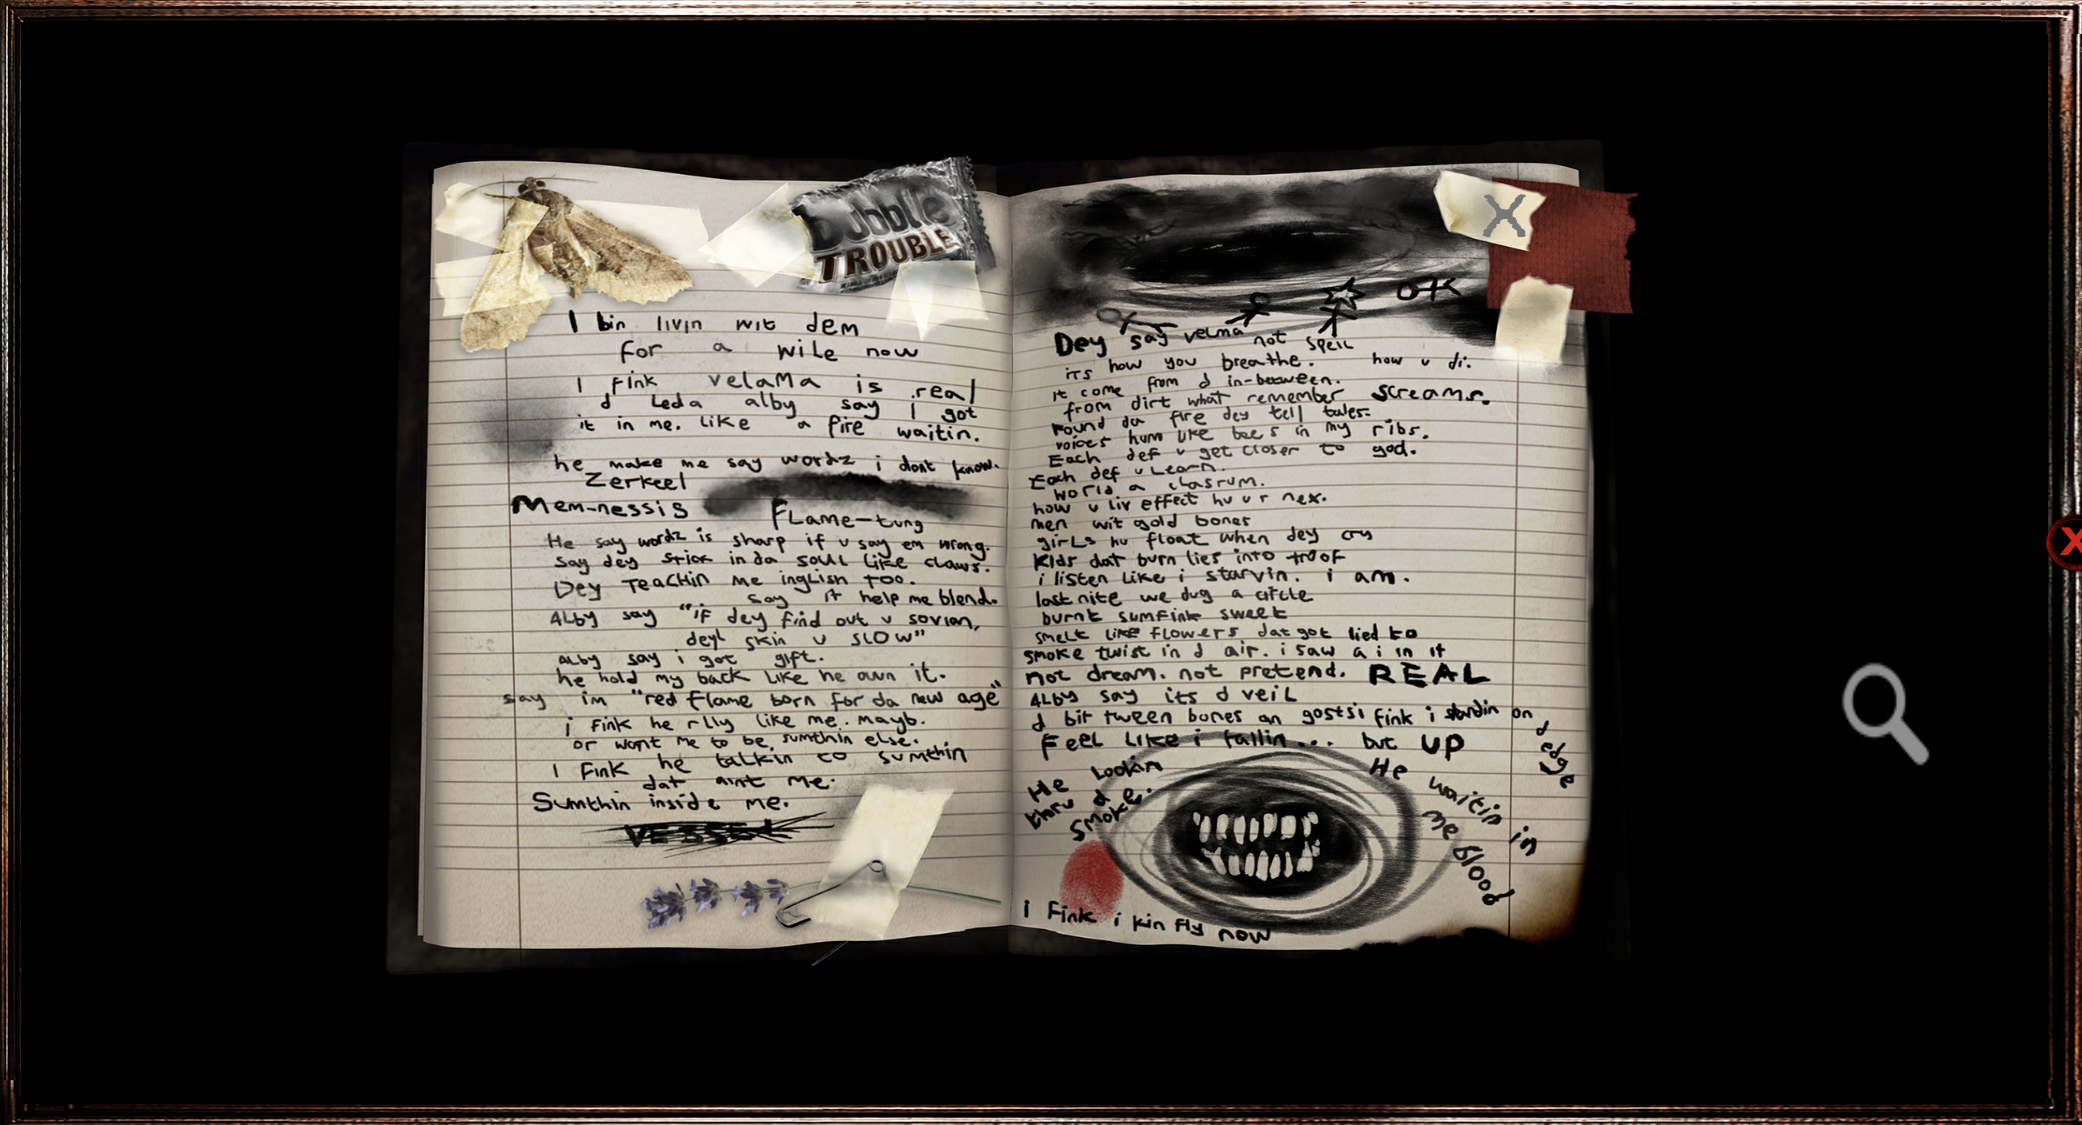 bubble
TROUBLE
I bin livin wit dem
for a wile now
I fink velaMa is real
d Leda alby say i got
it in me. like a fire waitin.
he make me say wordz i dont know.
Zerkeel
Mem-nessis
Flame-tung
He say wordz is sharp if u say em wrong.
say dey stick in da soul like claws.
Dey Teachin me inglish too.
say it help me blend.
Alby say "if dey find out u sovian,
deyl skin u slow"
alby say i got gift.
he hold my back like he own it.
say im "red flame born for da new age"
i fink he rlly like me. mayb.
or want me to be sumthin else.
I Fink he talkin to sumthin
dat aint me.
Sumthin inside me.
VESSEL
X
Dey say velma not spell
its how you breathe. how u di.
it come from d in-between.
from dirt what remember screams.
round da fire dey tell tales.
voices hum like bees in my ribs.
Each def u get closer to god.
Each def u learn.
world a clasrum.
how u liv effect hu u r nex.
men wit gold bones
girls hu float when dey cry
kids dat burn lies into troof
i listen like i starvin. i am.
last nite we dug a circle
burnt sumfink sweet
smelt like flowers dat got lied to
smoke twist in d air. i saw a i in it
not dream. not pretend. REAL
Alby say its d veil
d bit tween bones an gosts i fink i standin on d edge
Feel like i fallin... but UP
He lookin
thru d
smoke.
He waitin in
me blood
i Fink i kin fly now
X